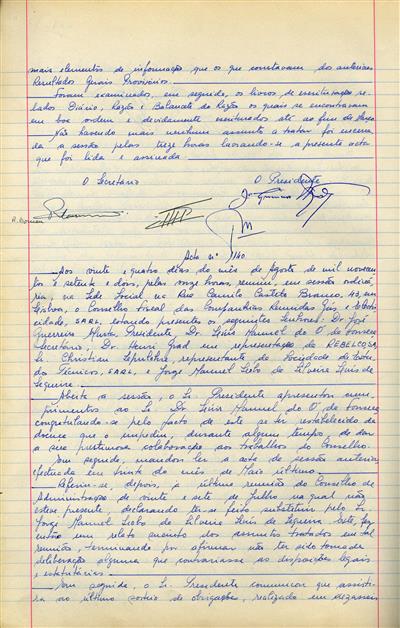 mais elementos de informação que os que constavam dos anteriores
Resultados Gerais Provisórios.
Foram examinados, em seguida, os livros de escrituração se-
lados Diário, Razão e Balancete do Razão os quais se encontravam
em boa ordem e devidamente escriturados até ao fim de Março.
Não havendo mais nenhum assunto a tratar foi encerra-
da a sessão pelas treze horas lavrando-se a presente acta
que foi lida e assinada.
O Secretário O Presidente
Acta nº 140
Aos vinte e quatro dias do mês de Agosto de mil novecen-
tos e setenta e dois, pelas onze horas, reuniu, em sessão ordiná-
ria, na Sede Social na Rua Camilo Castelo Branco, 43, em
Lisboa, o Conselho Fiscal das Companhias Reunidas Gás e Electri-
cidade, SARL, estando presentes os seguintes Senhores: Dr. José
Guerreiro Murta, Presidente, Dr. Luis Manuel do O' da Fonseca
Secretário, Dr. Henri em representação de REBELCOSA,
Sr. Christian Lepulchre, representante da Sociedade de
Técnicos, SARL, e Jorge Manuel de Silveira Luis de
Sequeira.
Aberta a sessão, o Sr. Presidente apresentou cum-
primentos ao Sr. Dr. Luis Manuel do O' da Fonseca
congratulando-se pelo facto de este se ter restabelecido da
doença que o impediu, durante algum tempo, de dar
a sua prestimosa colaboração aos trabalhos do Conselho.
Em seguida, mandou ler a acta da sessão anterior
efectuada em trinta do mês de Maio último.
Referiu-se, depois, à última reunião do Conselho de
Administração de vinte e sete de Julho na qual não
esteve presente, declarando ter-se feito substituir pelo Sr.
Jorge Manuel de Silveira Luis de Sequeira. Este, fez
então um relato sucinto dos assuntos tratados em tal
reunião, terminando por afirmar não ter sido tomada
deliberação alguma que contrariasse as disposições legais
e estatutárias.
Em seguida, o Sr. Presidente comunicou que assisti-
ra ao último sorteio de obrigações, realizado em dezasseis